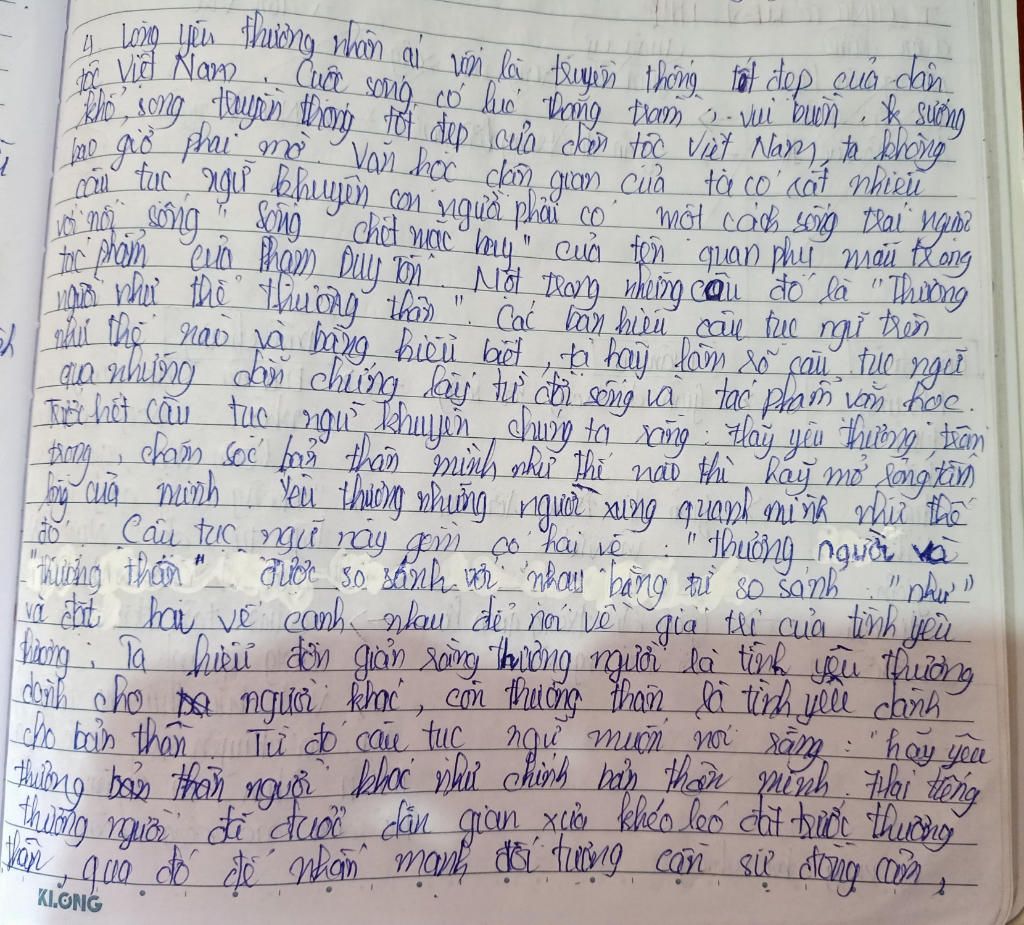 4 Lòng yêu thương nhân ái vốn là truyền thống tốt đẹp của dân
tộc Việt Nam. Cuộc sống có lúc thăng trầm, vui buồn, sướng
khổ, song truyền thống tốt đẹp của dân tộc Việt Nam, ta không
bao giờ phai mờ. Văn học dân gian của ta có rất nhiều
câu tục ngữ khuyên con người phải có một cách sống trái ngược
với nối sống "sống chết mặc bay" của tên quan phụ mẫu trong
tác phẩm của Phạm Duy Tốn. Một trong những câu đó là "Thương
người như thể thương thân". Các bạn hiểu câu tục ngữ trên
như thế nào và bằng hiểu biết, ta hãy làm rõ câu tục ngữ
qua những dẫn chứng lấy từ đời sống và tác phẩm văn học.
Trước hết câu tục ngữ khuyên chúng ta rằng: Hãy yêu thương, trân
trọng, chăm sóc bản thân mình như thế nào thì hãy mở rộng tấm
lòng của mình. Yêu thương những người xung quanh mình như thế
đó. Câu tục ngữ này gồm có hai vế: "thương người và
"thương thân" được so sánh với nhau bằng từ so sánh: "như"
và đặt hai vế cạnh nhau để nói về giá trị của tình yêu
thương. Ta hiểu đơn giản rằng thương người là tình yêu thương
dành cho người khác, còn thương thân là tình yêu dành
cho bản thân. Từ đó câu tục ngữ muốn nói rằng: "hãy yêu
thương bản thân người khác như chính bản thân mình. Hai tiếng
thương người đã được dân gian xưa khéo léo đặt trước thương
thân, qua đó để nhấn mạnh đối tượng cần sự đồng cảm,
KLONG